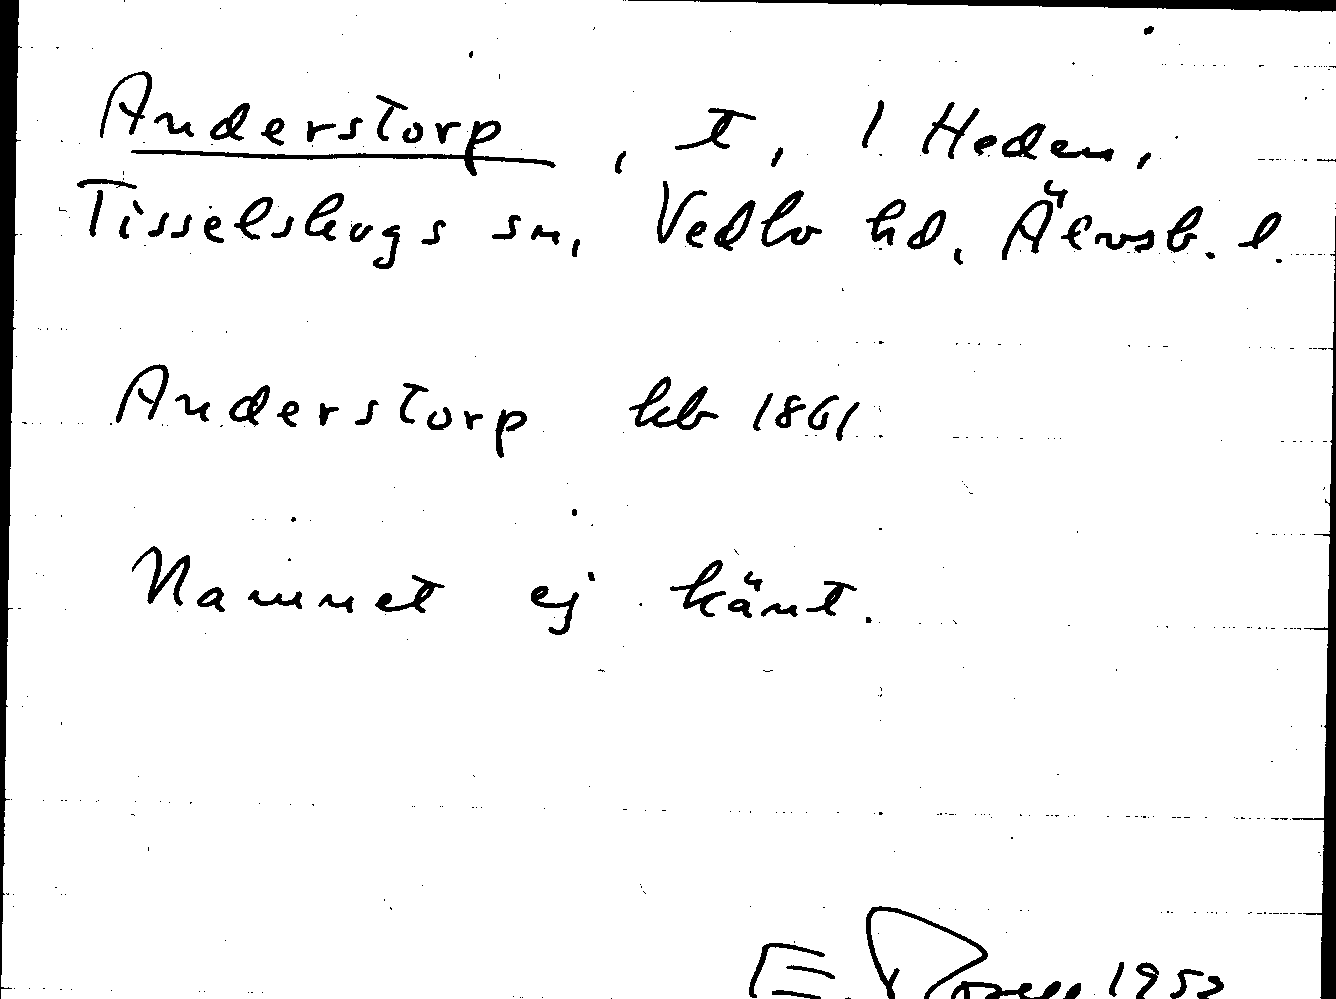 Anderstorp, t, 1 Heden,
Tisselskogs sn, Vedbo hd, Älvsb. l.
Anderstorp kb 1861
Namnet ej känt.
E. 1952